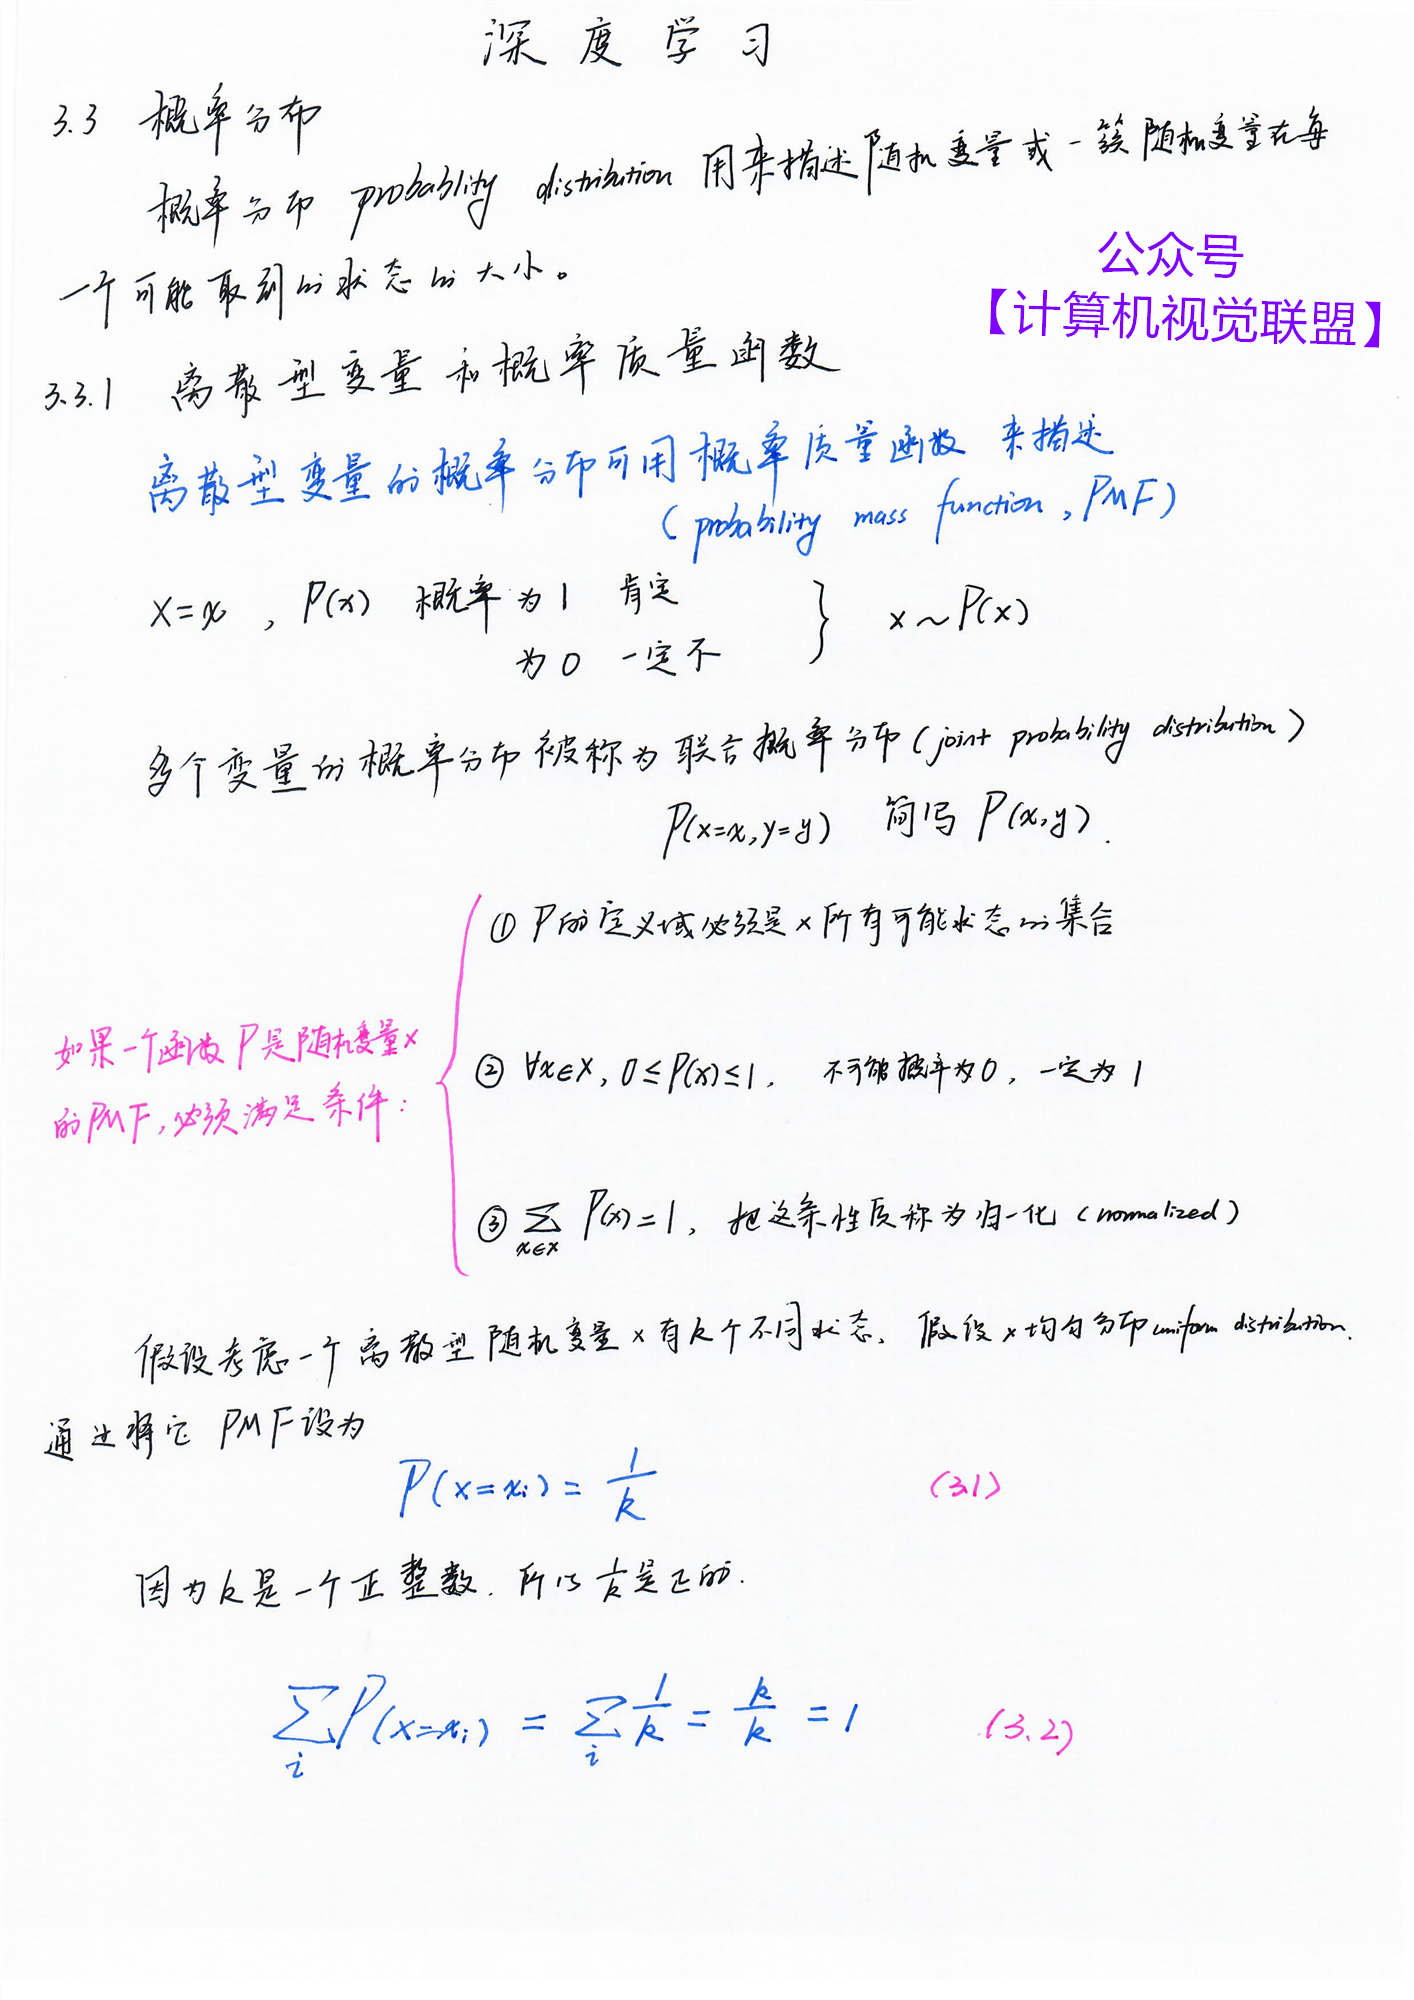 深度学习
3.3 概率分布
概率分布 probablity distribution 用来描述随机变量或一簇随机变量在每
一个可能取到的状态的大小。
公众号
【计算机视觉联盟】
3.3.1 离散型变量和概率质量函数
离散型变量的概率分布可用概率质量函数 来描述
(probability mass function, PMF)
x=x, P(x) 概率为1 肯定
为0 一定不 } x~P(x)
多个变量的概率分布被称为联合概率分布(joint probability distribution)
P(x=x,y=y) 简写 P(x,y).
① P的定义域必须是x所有可能状态的集合
如果一个函数P是随机变量x
的PMF,必须满足条件:
② ∀x∈x, 0≤P(x)≤1, 不可能概率为0, 一定为1
③ ∑x∈x P(x)=1, 把这条性质称为归一化(normalized)
假设考虑一个离散型随机变量x有k个不同状态, 假设x均匀分布uniform distribution.
通过将它PMF设为
P(x=xi)=1/k (3.1)
因为k是一个正整数.所以1/k是正的.
∑i P(x=xi) = ∑i 1/k = k/k = 1 (3.2)